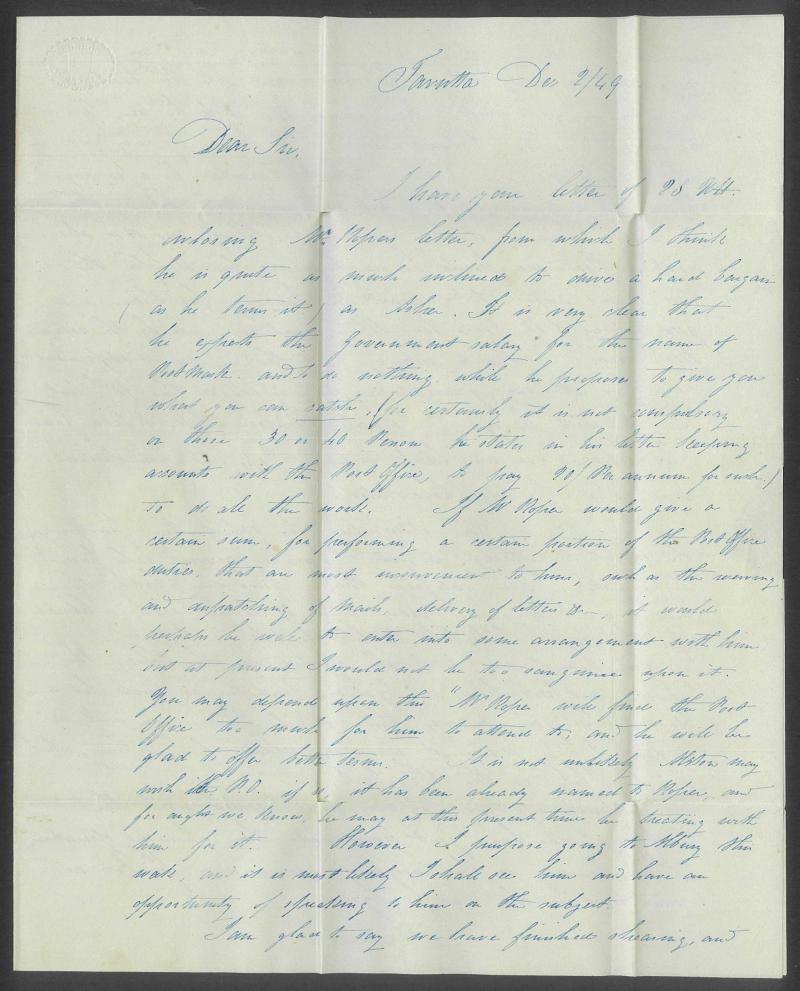 Tarutta Dec 2/49
Dear Sir,
I have your letter of 28 Ult.
enclosing Mr. Ropers letter, from which I think
he is quite as much inclined to drive a hard bargain
(as he terms it) as Asher. It is very clear that
he expects the Government salary for the name of
Post Mastr. and to do nothing while he proposes to give you
what you can catch, (for certainly it is not compulsory
on those 30 or 40 Persons he states in his letter keeping
accounts with the Post Office, to pay 20/ Per annum for such)
to do all the work. If Mr Roper would give a
certain sum, for performing a certain portion of the Post Office
duties, that are most inconvenient to him, such as the receiving
and despatching of Mails, delivery of letters &c, it would
perhaps be well to enter into some arrangement with him
but at present I would not be too sanguine upon it.
You may depend upon this "Mr Roper will find the Post
Office too much for him to attend to, and he will be
glad to offer better terms. It is not unlikely Alston may
wish the P.O. if so, it has been already named to Roper, and
for aught we know, he may at this present time be treating with
him for it. However I purpose going to Albury this
week, and it is most likely I shall see him and have an
opportunity of speaking to him on the subject.
I am glad to say we have finished shearing, and